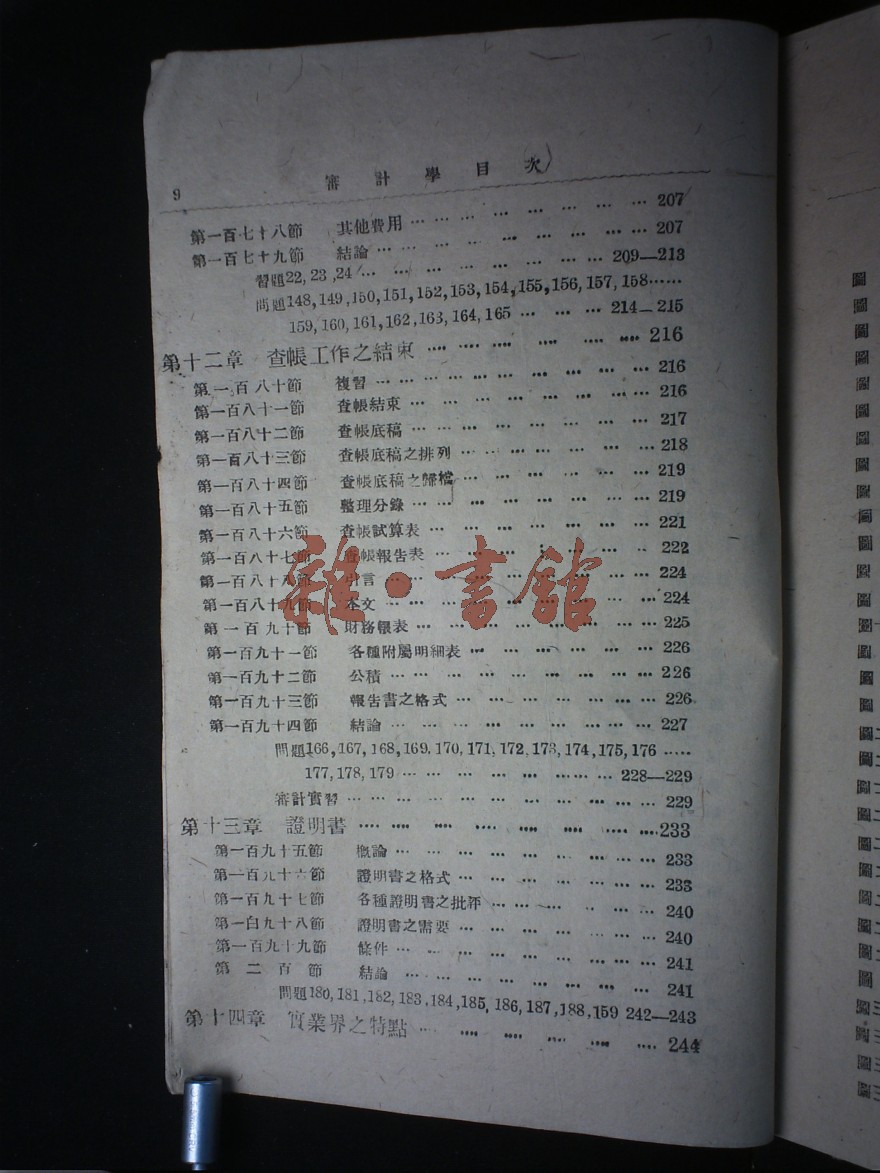 9 審計學目次
第一百七十八節 其他費用 … … … … … … … … 207
第一百七十九節 結論 … … … … … … … … 207
習題22,23,24 … … … … … … … 209—213
問題148,149,150,151,152,153,154,155,156,157,158……
159,160,161,162,163,164,165 … … … 214—215
第十二章 查帳工作之結束 … … … … … … 216
第一百八十節 複習 … … … … … … … … 216
第一百八十一節 查帳結束 … … … … … … … 216
第一百八十二節 查帳底稿 … … … … … … … 217
第一百八十三節 查帳底稿之排列 … … … … … … 218
第一百八十四節 查帳底稿之歸檔 … … … … … … 219
第一百八十五節 整理分錄 … … … … … … … 219
第一百八十六節 查帳試算表 … … … … … … … 221
第一百八十七節 查帳報告表 … … … … … … … 222
第一百八十八節 引言 … … … … … … … … 224
第一百八十九節 本文 … … … … … … … … 224
第一百九十節 財務報表 … … … … … … … 225
第一百九十一節 各種附屬明細表 … … … … … … 226
第一百九十二節 公積 … … … … … … … … 226
第一百九十三節 報告書之格式 … … … … … … 226
第一百九十四節 結論 … … … … … … … … 227
問題166,167,168,169,170,171,172,173,174,175,176……
177,178,179 … … … … … … … 228—229
審計實習 … … … … … … … … … 229
第十三章 證明書 … … … … … … … 233
第一百九十五節 概論 … … … … … … … … 233
第一百九十六節 證明書之格式 … … … … … … 233
第一百九十七節 各種證明書之批評 … … … … … 240
第一百九十八節 證明書之需要 … … … … … … 240
第一百九十九節 條件 … … … … … … … … 241
第二百節 結論 … … … … … … … … 241
問題180,181,182,183,184,185,186,187,188,159 242—243
第十四章 實業界之特點 … … … … … … 244
雜·書館